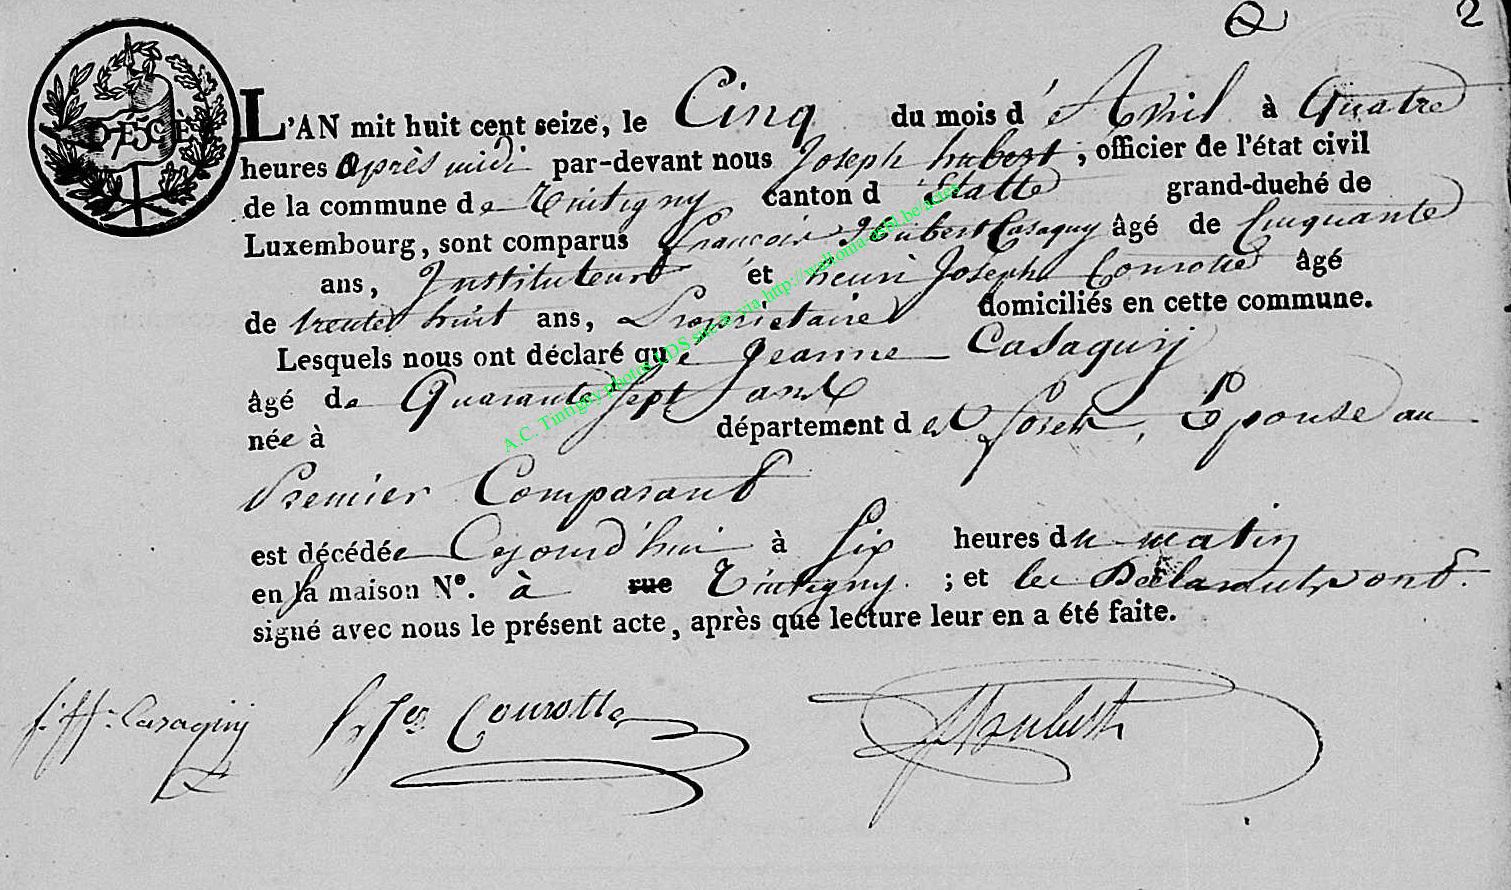 Q 2
DÉCÈS
L'AN mit huit cent seize, le Cinq du mois d'Avril à Quatre
heures Après midi par-devant nous Joseph hubert, officier de l'état civil
de la commune de Tintigny canton d'Etalle grand-duché de
Luxembourg, sont comparus François Hubert Casaquy âgé de Cinquante
ans, Instituteur et henri Joseph Courotte âgé
de trente huit ans, Propriétaire domiciliés en cette commune.
Lesquels nous ont déclaré que Jeanne Casaquij
âgé de Quarante Sept ans
née à département des forets, Épouse au
Premier Comparant
est décédée Cejourd'hui à Six heures du matin
en sa maison N°. à rue Tintigny ; et les Déclarants ont
signé avec nous le présent acte, après que lecture leur en a été faite.
f. H. Casaquij Courotte J Hubert
A.C. Tintigny photos LDS site @ via http://wallonia-asbl.be/actes